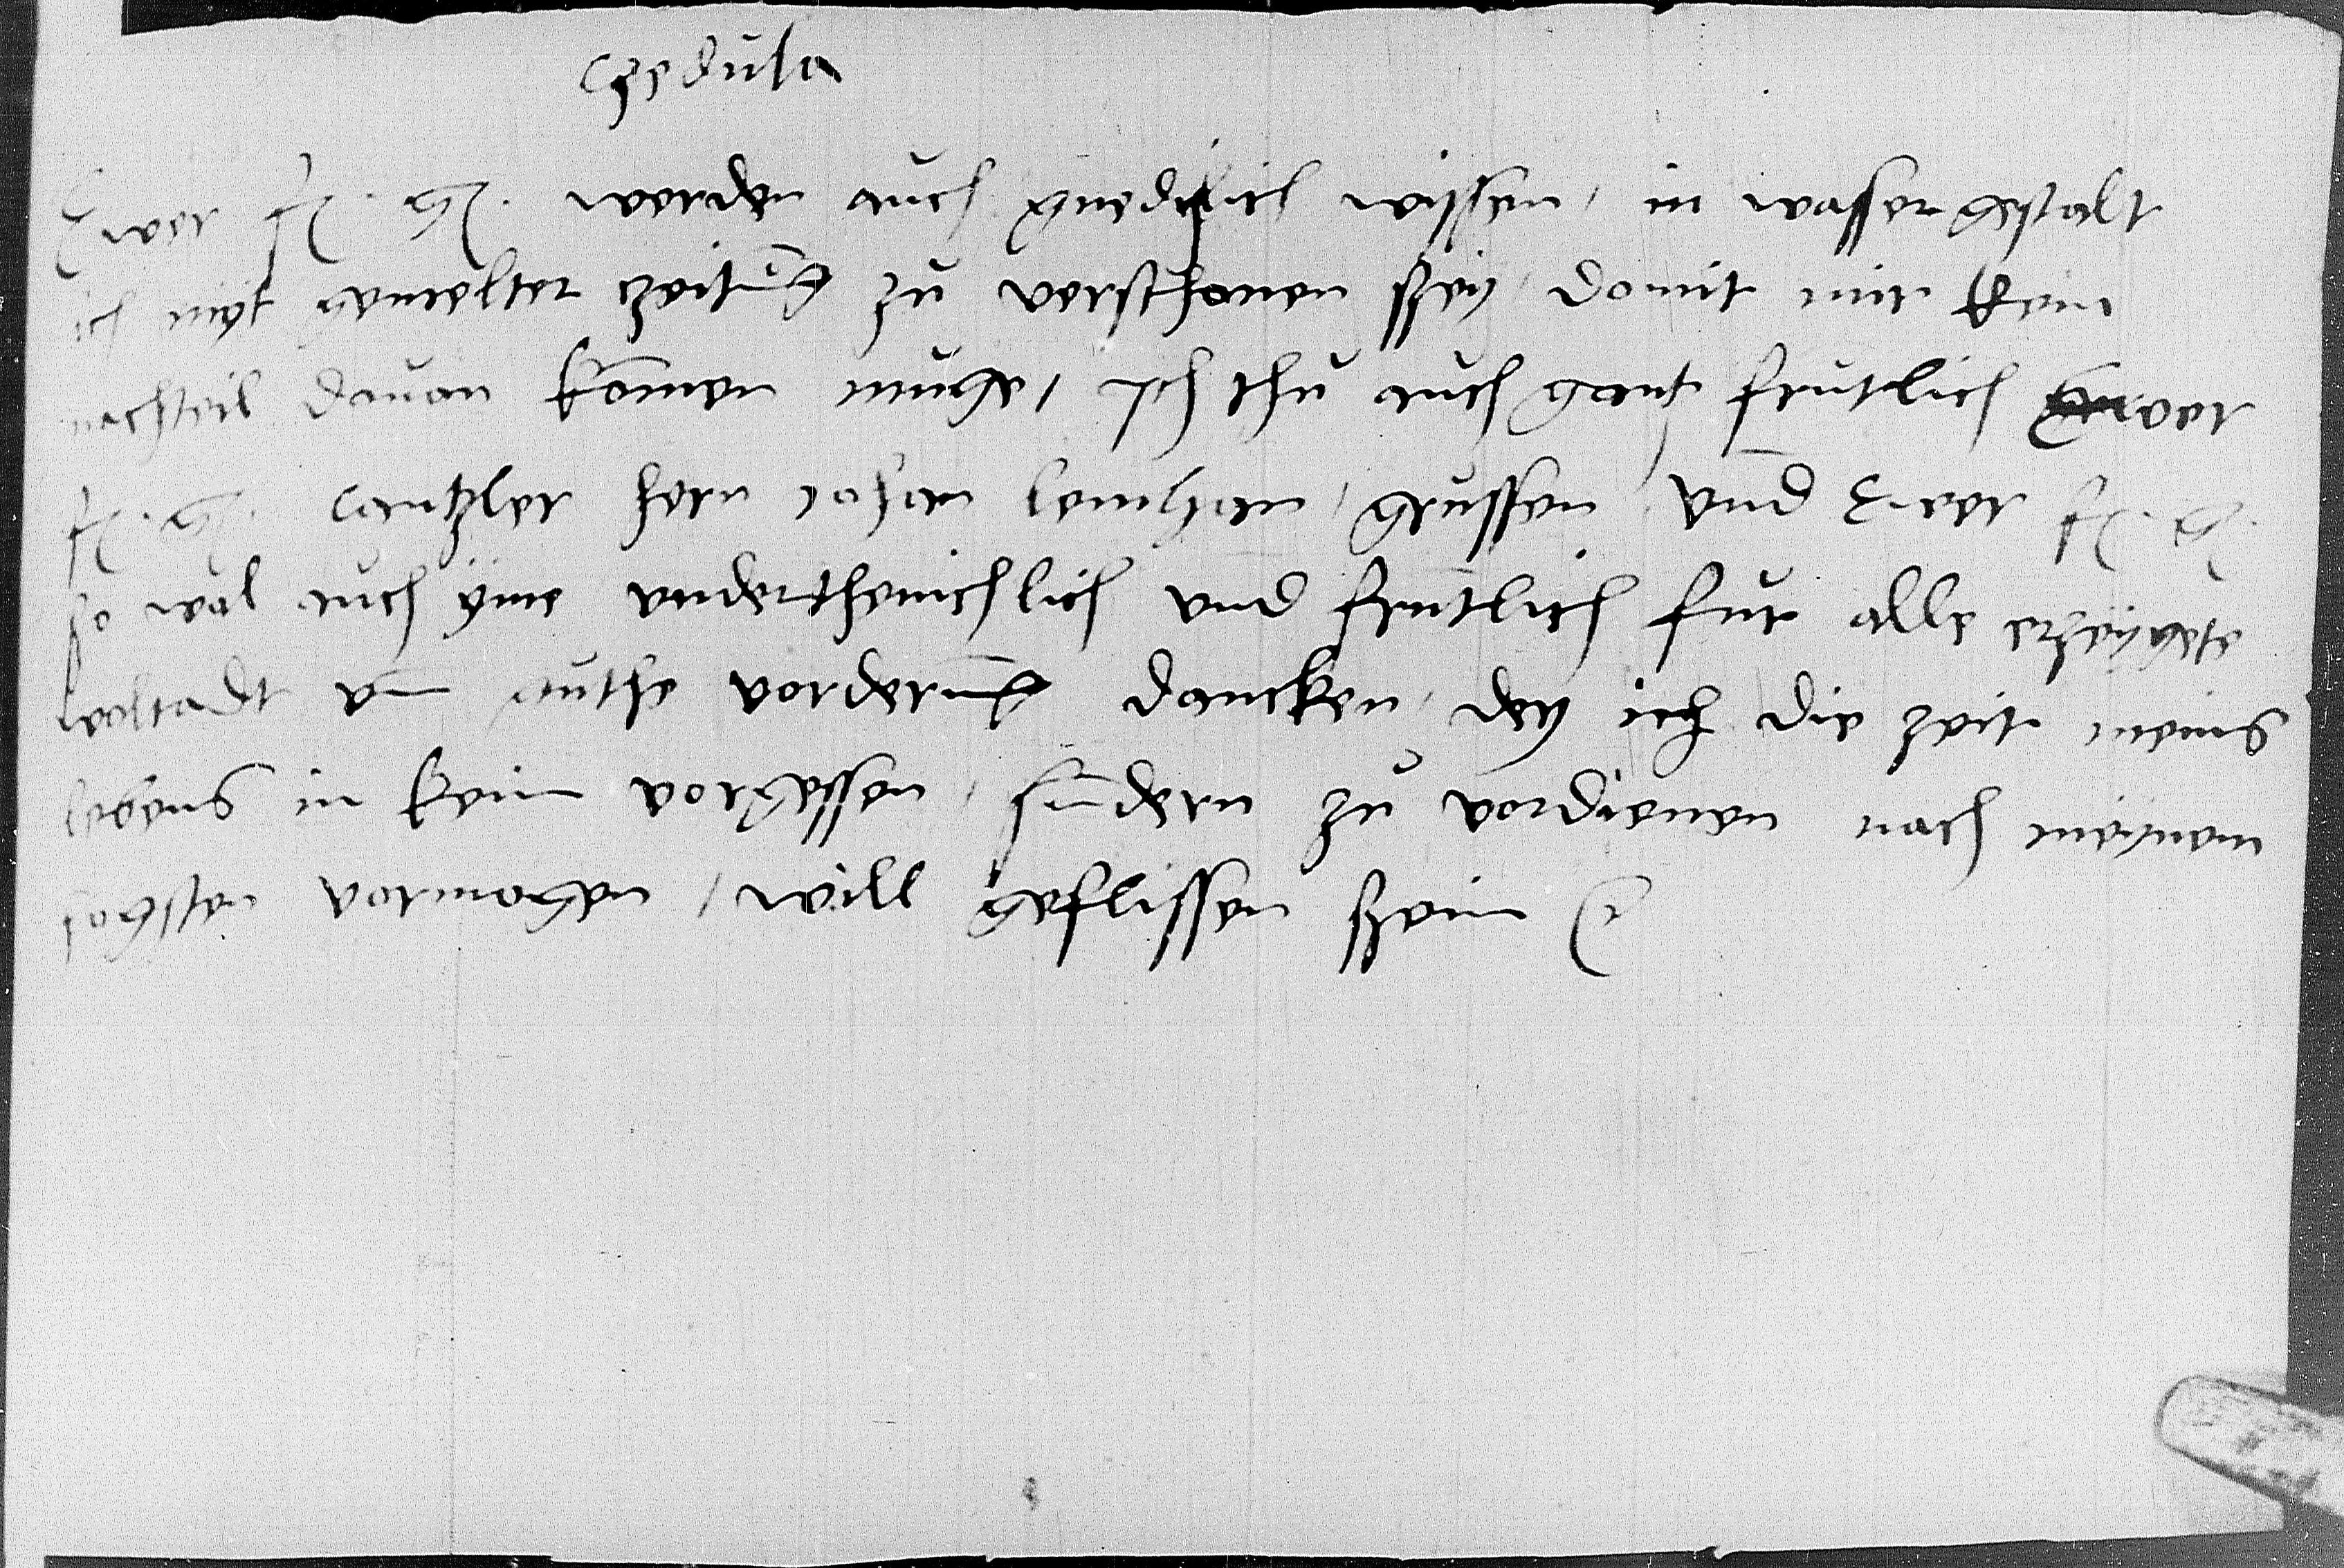 Czedula
Ewer f. g. werden auch gnediglich wissen, in wasser gestalt
ich myt gemelter zeitung zu verschonen szey, domit mir kein
nachteil dauon komen muge, Ich thu auch gantz fruntlich Ewer
f. g. Cantzler hern Johan grussen, vnd Ewer f. g.
so wal auch yme vnderthenichlich vnd fruntlich fur alle erzeygete
woltadt vn guthe vorderung dancken, dez ich die zeit meins
lebens in kein vorgessen, sundern zu vordienen nach meynem
hogsten vormogen, will geflissen szein